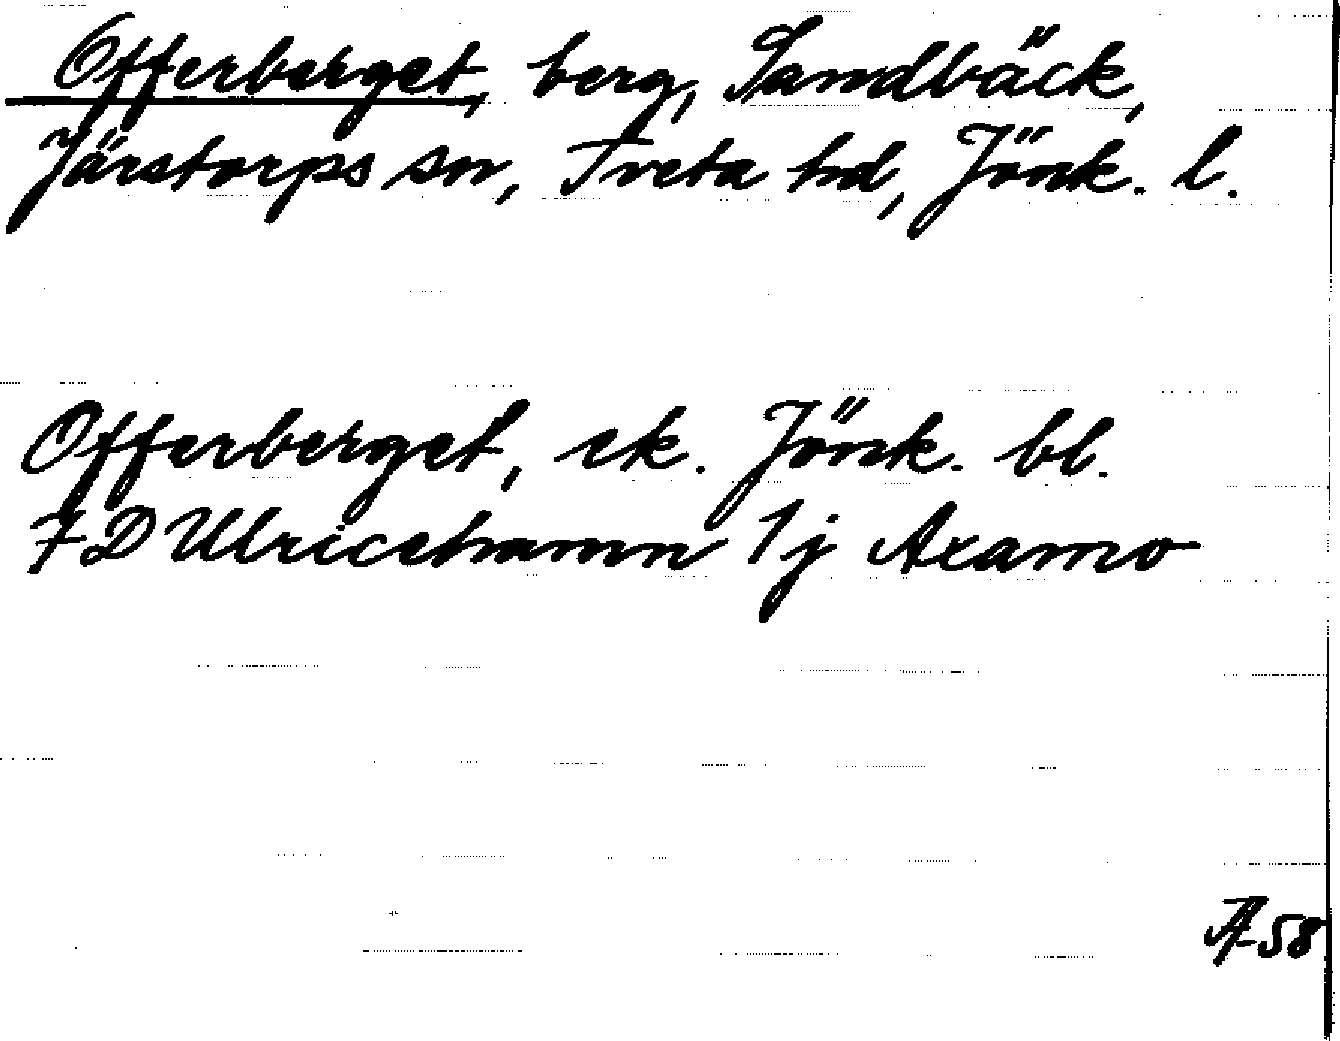 Offerberget, berg, Sandbäck,
Järstorps sn, Tveta hd, Jönk. l.
Offerberget, ek. Jönk. bl.
7D Ulricehamn 1j Axamo
-58